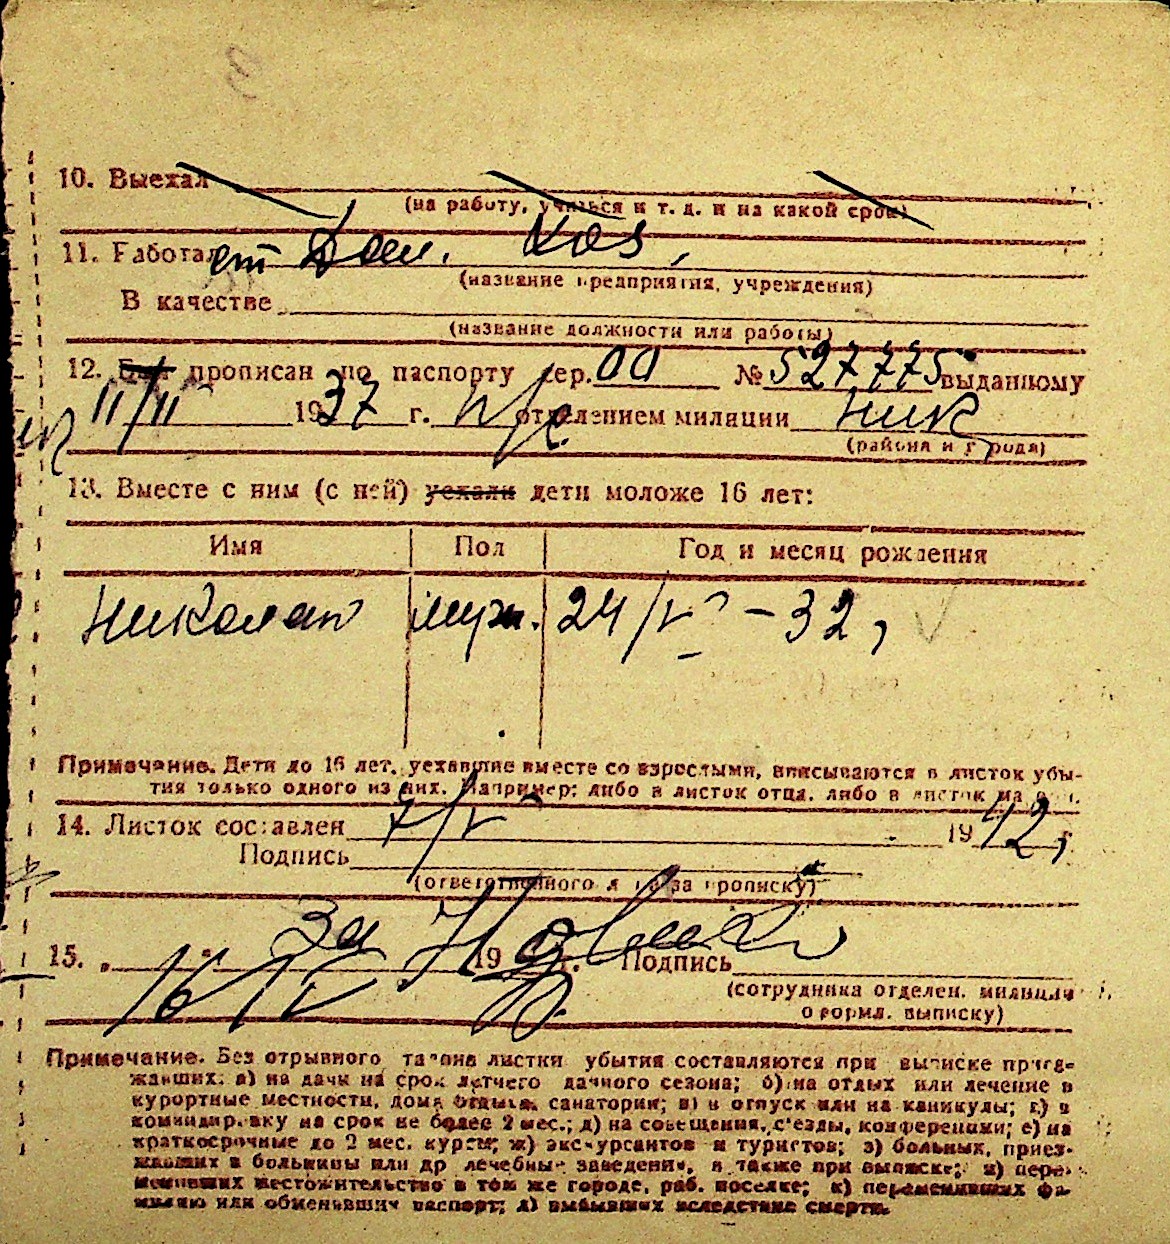 10. Выехал
(на работу, учиться и т. д. и на какой срок)
11. Работал Дом. хоз.
(название предприятия, учреждения)
В качестве
(название должности или работы)
12. Был прописан по паспорту сер. № 527775 выданному
11/II 1937 г. отделением милиции
(района и города)
13. Вместе с ним (с ней) уехали дети моложе 16 лет:
Имя Пол Год и месяц рождения
Николай муж. 24/V - 32,
Примечание. Дети до 16 лет, уехавшие вместе со взрослыми, вписываются в листок убы-
тия только одного из них. Например: либо в листок отца, либо в листок ма
14. Листок составлен 7/V 1942 г
Подпись
(ответственного за прописку)
За
15. 16/V 19 г. Подпись
(сотрудника отделен. милиции
оформл. выписку)
Примечание. Без отрывного талона листки убытия составляются при выписке приез-
жавших: а) на дачи на срок летнего дачного сезона; б) на отдых или лечение в
курортные местности, дома отдыха, санатории; в) в отпуск или на каникулы; г) в
командировку на срок не более 2 мес.; д) на совещания, съезды, конференции; е) на
краткосрочные до 2 мес. курсы; ж) экскурсантов и туристов; з) больных, приез-
жавших в больницы или др лечебные заведения, а также при выписке; и) пере-
менивших местожительство в том же городе, раб. поселке; к) переменивших фа-
милию или обменивших паспорт; л) выбывших вследствие смерти.